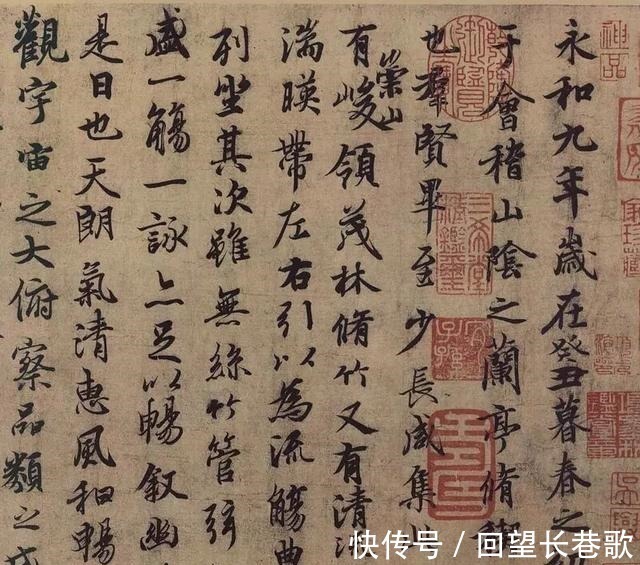 永和九年歲在癸丑暮春之初
于會稽山陰之蘭亭脩禊
也羣賢畢至少長咸集此
有崇山峻領茂林脩竹又有清
湍暎帶左右引以為流觴曲
列坐其次雖無絲竹管弦
盛一觴一詠亦足以暢叙幽
是日也天朗氣清惠風和暢
觀宇宙之大俯察品類之
神品
快传号 / 回望长巷歌